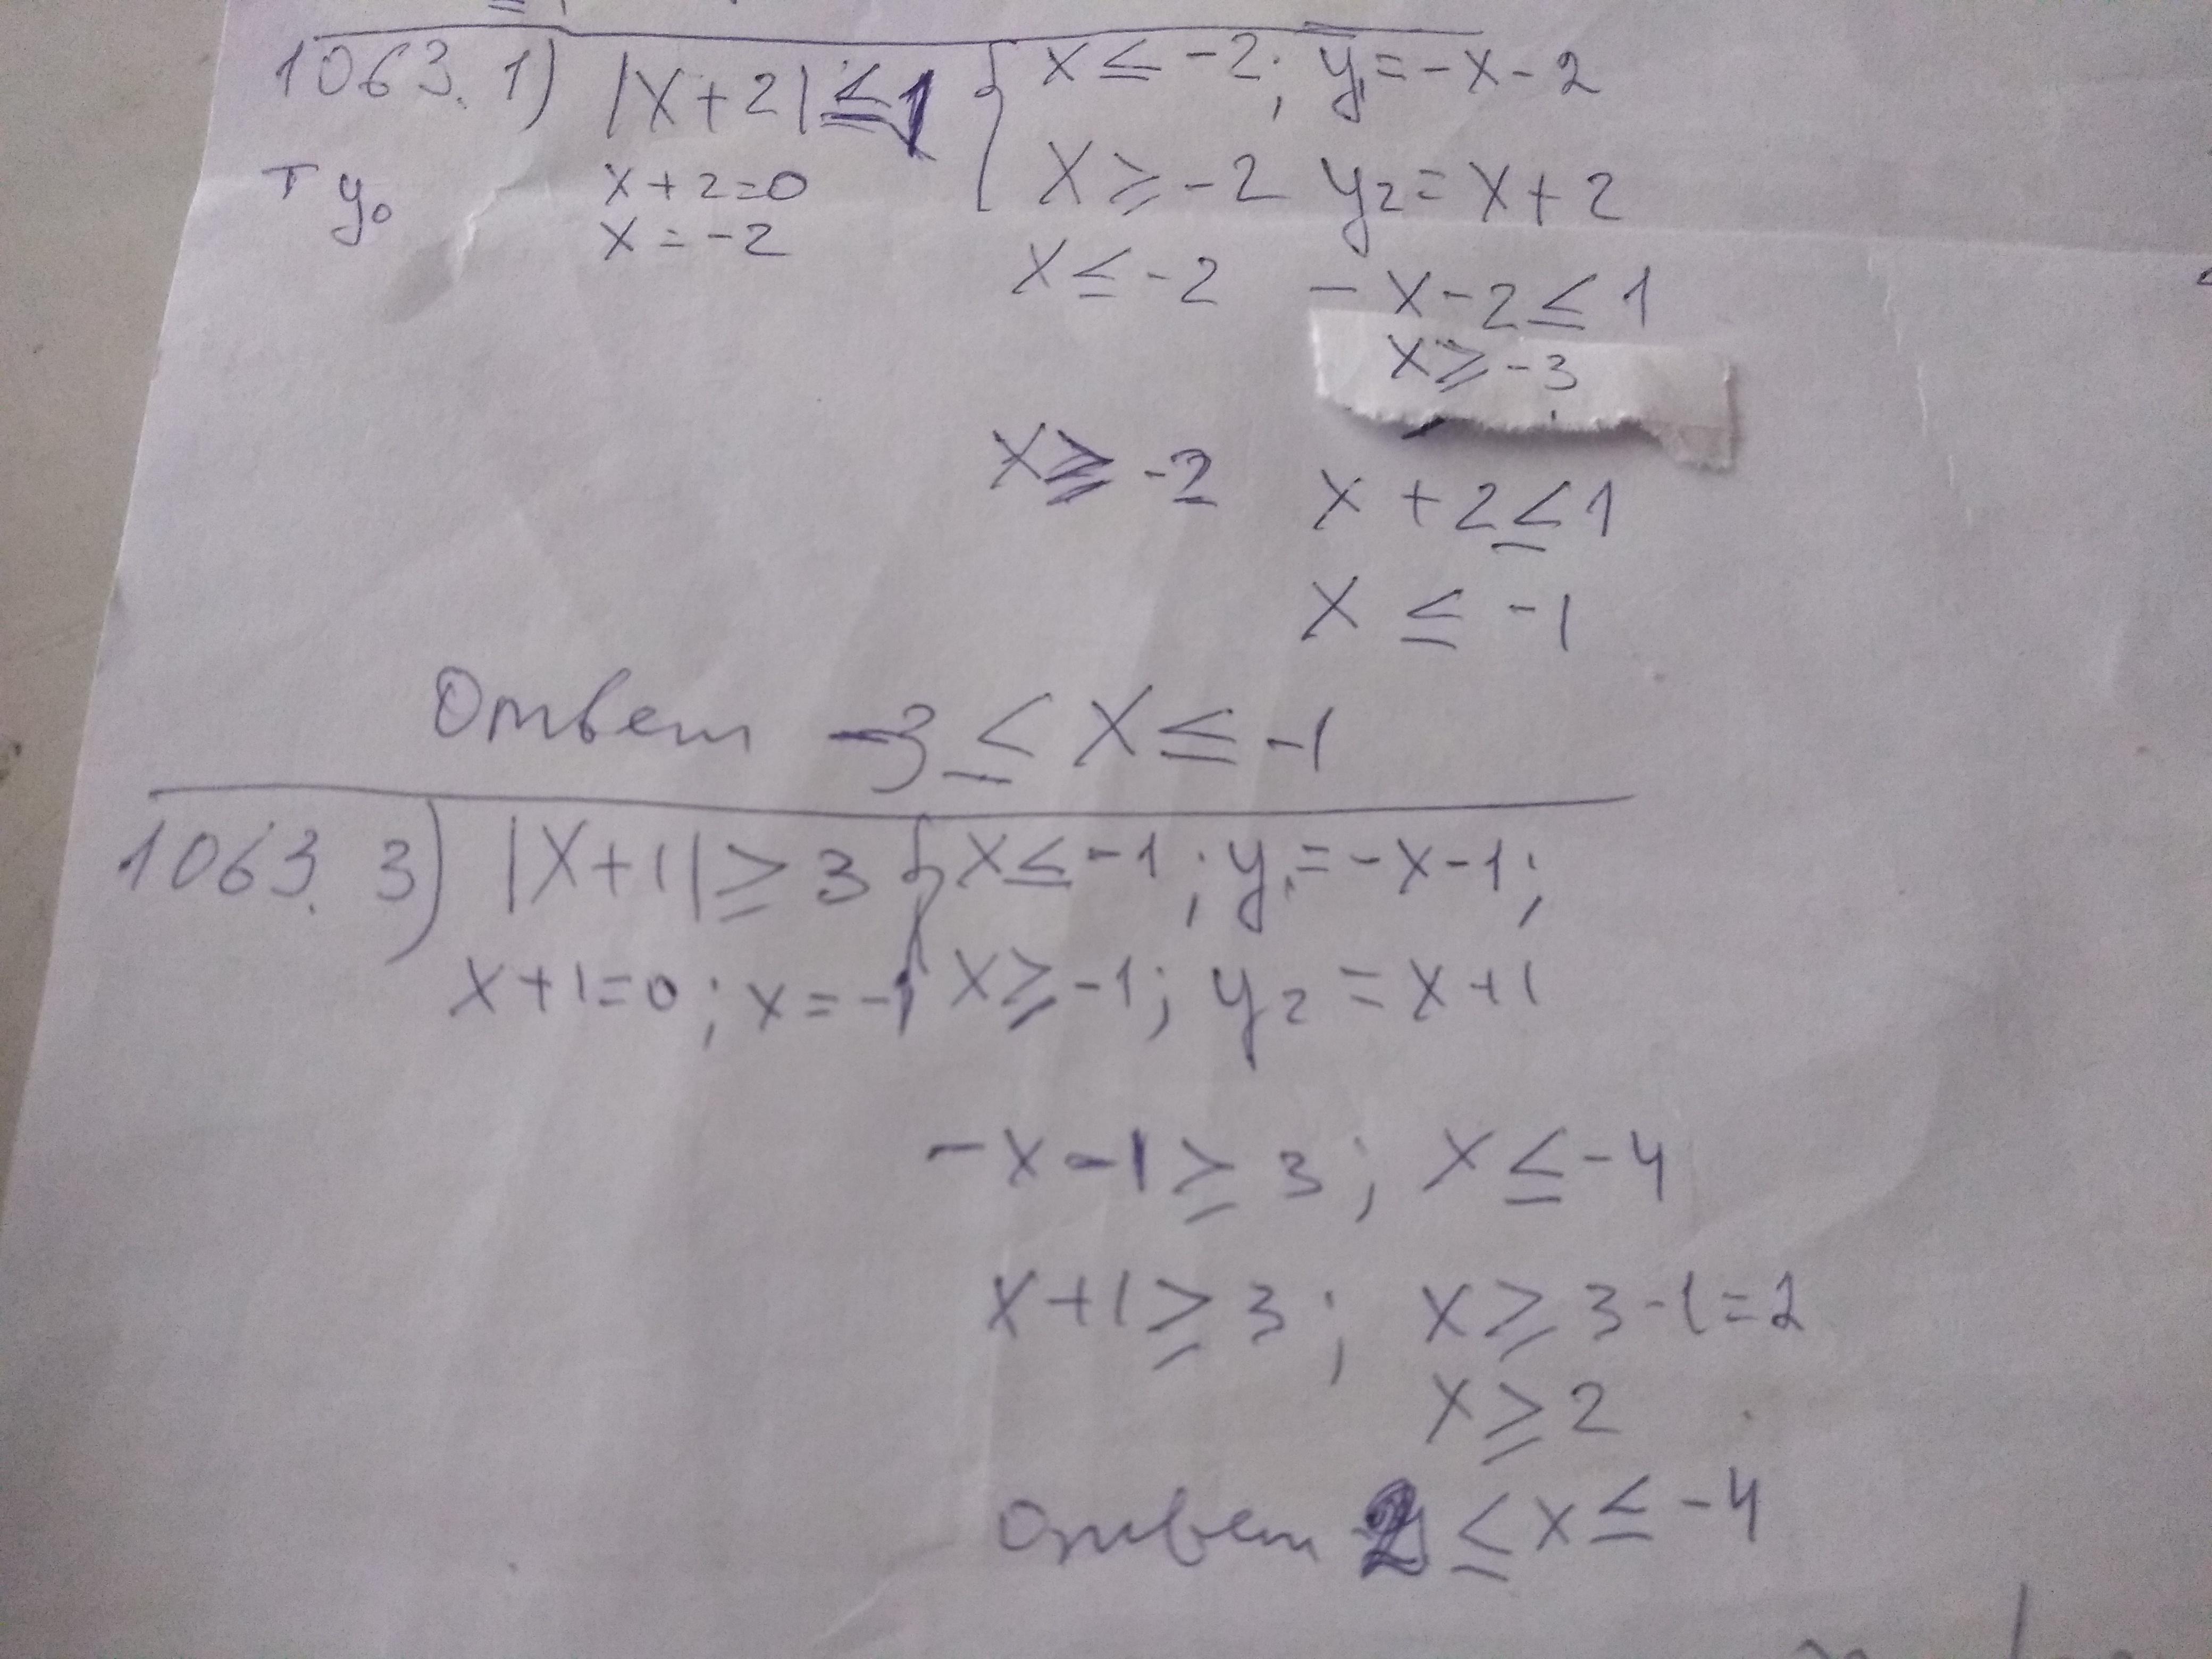 1063. 1) |x+2| ≤ 1 { x ≤ -2; y₁ = -x-2
т y₀ x+2=0 x ≥ -2 y₂ = x+2
x = -2
x ≤ -2 -x-2 ≤ 1
x ≥ -3
x ≥ -2 x+2 ≤ 1
x ≤ -1
Ответ -3 ≤ x ≤ -1
1063. 3) |x+1| ≥ 3 { x ≤ -1; y₁ = -x-1;
x+1=0; x=-1 x ≥ -1; y₂ = x+1
-x-1 ≥ 3; x ≤ -4
x+1 ≥ 3; x ≥ 3-1=2
x ≥ 2
Ответ 2 ≤ x ≤ -4